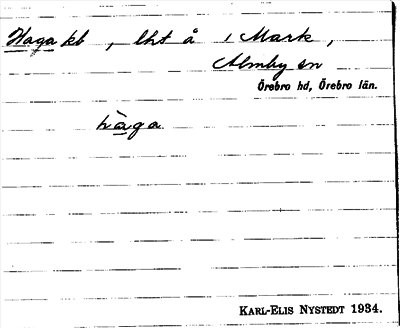 Haga kb, lht å 1 Mark,
Almby sn
Örebro hd, Örebro län.
hàga
KARL-ELIS NYSTEDT 1934.